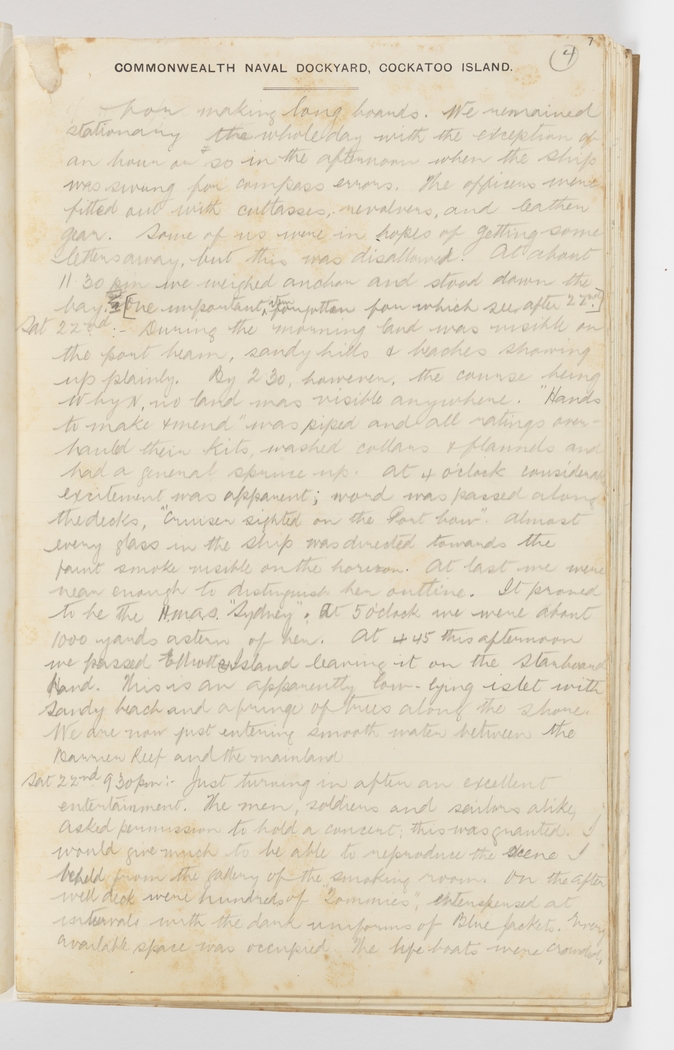 7
4
COMMONWEALTH NAVAL DOCKYARD, COCKATOO ISLAND.
for making long boards. We remained
stationary the whole day with the exception of
an hour or so in the afternoon when the ship
was swung for compass errors. The officers were
fitted out with cutlasses, revolvers, and leather
gear. Some of us were in hopes of getting some
letters away, but this was disallowed. At about
11 30 pm we weighed anchor and stood down the
bay. [One important, item forgotten for which see after 22nd]
Sat 22nd :- During the morning land was visible on
the port beam, sandy hills & beaches showing
up plainly. By 2 30, however, the course being
W by N, no land was visible anywhere. "Hands
to make & mend" was piped and all ratings over-
hauld their kits, washed collars & flannels and
had a general spruce up. At 4 o'clock considerable
excitement was apparent; word was passed along
the decks, "Cruiser sighted on the Port bow". Almost
every glass in the ship was directed towards the
faint smoke visible on the horizon. At last we were
near enough to distinguish her outline. It proved
to be the H.m.a.s. "Sydney". At 5 o'clock we were about
1000 yards astern of her. At 4 45 this afternoon
we passed Elliotts Island leaving it on the Starboard
Hand. This is an apparently low-lying islet with
sandy beach and a fringe of trees along the shore.
We are now just entering smooth water between the
Barrier Reef and the mainland
Sat 22nd 9 30 pm :- Just turning in after an excellent
entertainment. The men, soldiers and sailors alike,
asked permission to hold a concert; this was granted. I
would give much to be able to reproduce the scene I
beheld from the gallery of the smoking room. On the after
well deck were hundreds of "Tommies", interspersed at
intervals with the dark uniforms of Blue Jackets. Every
available space was occupied. The life boats were crowded,